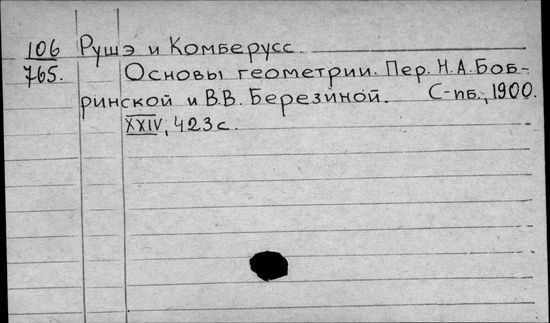 106 Рушэ и Комберусс.
765. Основы геометрии. Пер. Н.А. Боб-
ринской и В.В. Березиной. С-пб., 1900.
XXIV, 423 с.